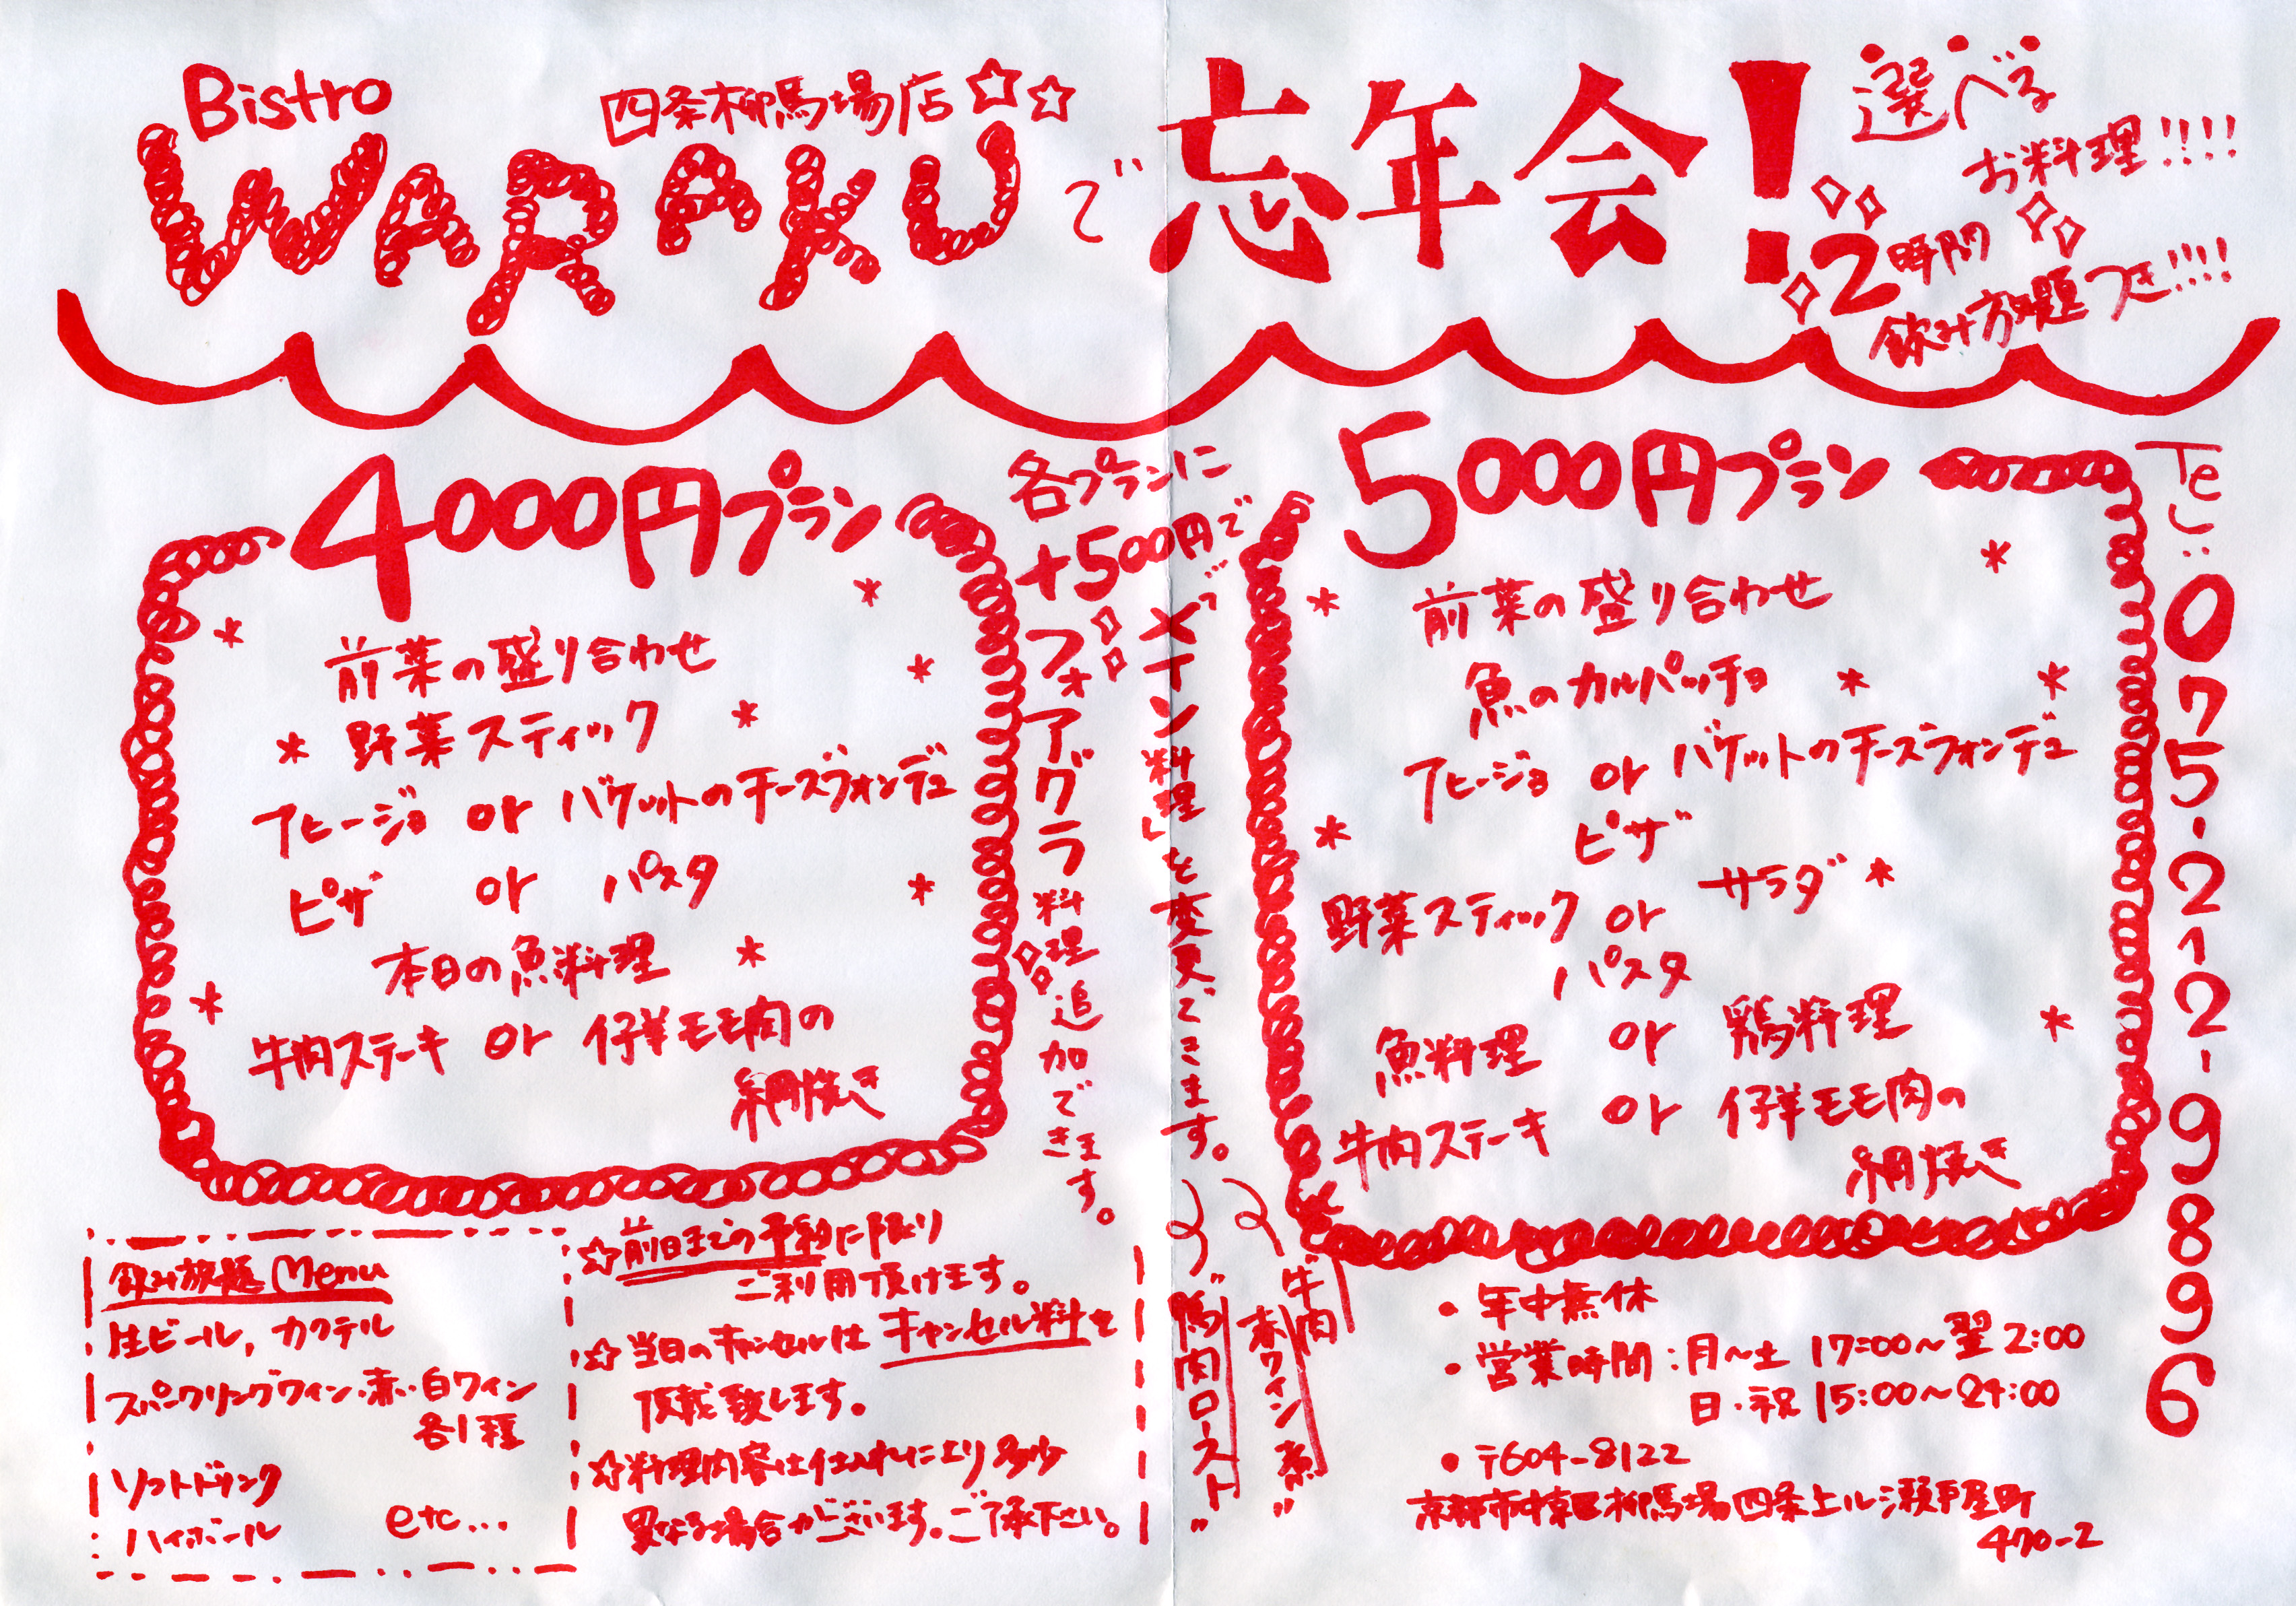 Bistro
WARAKU
四条柳馬場店☆☆
で
忘年会!
選べる
お料理!!!!
2時間
飲み放題つき!!!!
4000円プラン
前菜の盛り合わせ
野菜スティック
アヒージョ or バケットのチーズフォンデュ
ピザ or パスタ
本日の魚料理
牛肉ステーキ or 仔羊モモ肉の
網焼き
各プランに
+500円で
フォアグラ料理追加できます。
"メイン料理"を変更できます。
"鴨肉ロースト"
牛肉
赤ワイン煮"
5000円プラン
前菜の盛り合わせ
魚のカルパッチョ
アヒージョ or バケットのチーズフォンデュ
ピザ
野菜スティック or サラダ
パスタ
魚料理 or 鶏料理
牛肉ステーキ or 仔羊モモ肉の
網焼き
Tel: 075-212-9896
飲み放題Menu
生ビール, カクテル
スパークリングワイン・赤・白ワイン
各1種
ソフトドリンク
ハイボール etc...
☆前日までの予約に限り
ご利用頂けます。
☆当日のキャンセルはキャンセル料を
頂戴致します。
☆料理内容は仕入れにより多少
異なる場合がございます。ご了承下さい。
・年中無休
・営業時間:月〜土 17:00〜翌2:00
日・祝 15:00〜24:00
・〒604-8122
京都市中京区柳馬場四条上ル瀬戸屋町
470-2